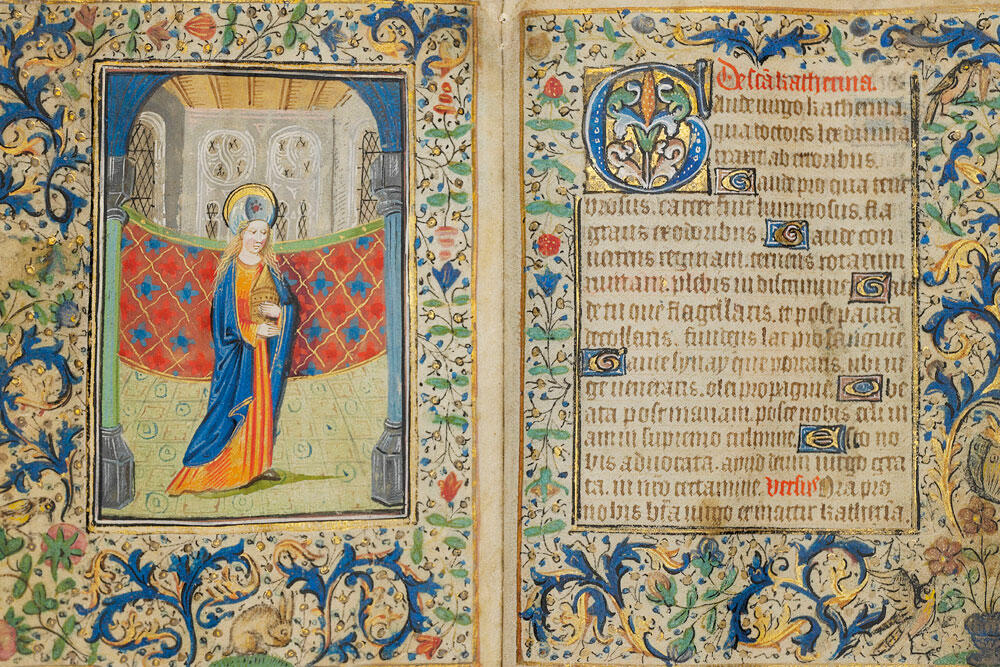 De sca katherina.
Gaude uirgo katherina
qua doctores lex diuina
traxit ab erroribus.
Gaude pro qua tene
brosus. carcer fuit luminosus. fla
gratis ex odoribus. Gaude con
uertens reginam. cernens rotarum
ruinam. plebis in discrimine. Gau
de tu que flagellaris. et post pausa
decollaris. fundens lac pro sanguine
Gaude synay que portaris. ubi iu
ge veneraris. olei O be
ata post mariam. nobis celi ui
am in supremo culmine. Esto no
bis aduocata. apud deum uirgo gra
ta. in nro certamine. Versus Ora pro
nobis bta uirgo et martir katheria